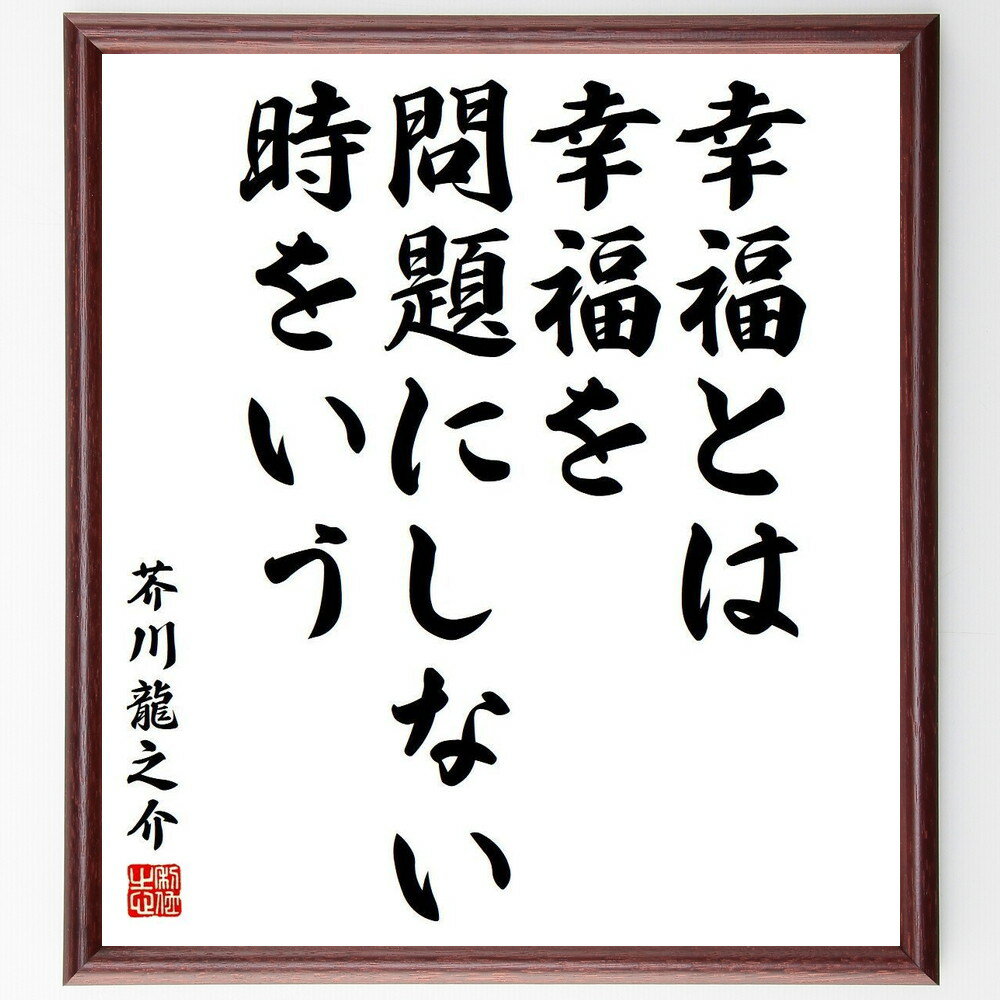 幸福とは
幸福を
問題にしない
時をいう
芥川龍之介